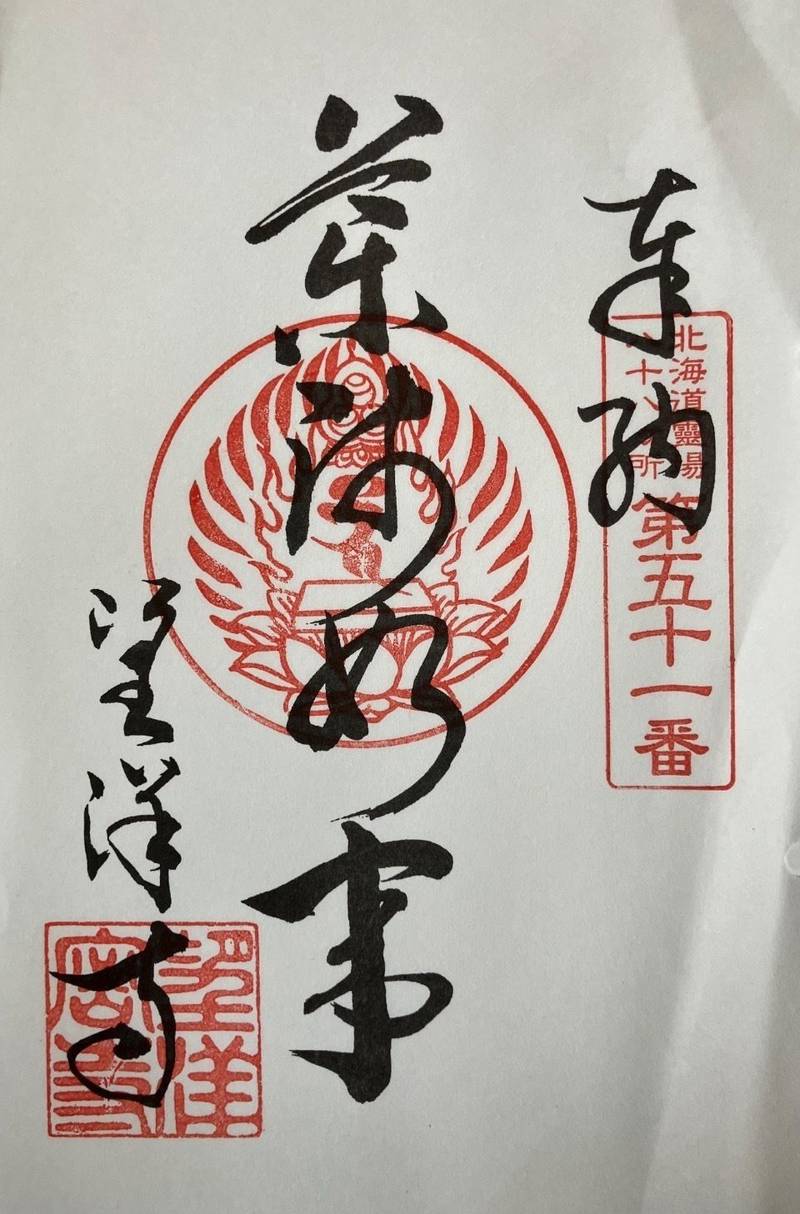 奉納
北海道靈場
八十八ヶ所
第五十一番
薬師如来
望洋寺
望洋
寺